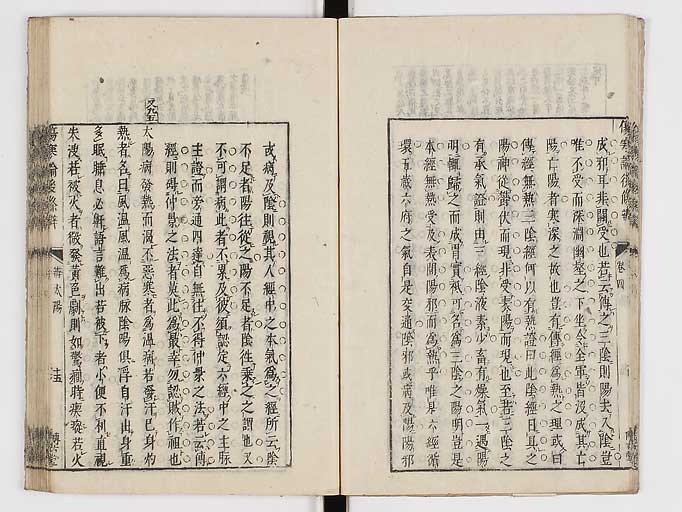 成邪耳非關受也若云傳之三陰則陽去入陰豈
唯不受而深淵幽壑之下坐令全軍皆沒成其亡
陽亡陽者寒深之故也豈有傳經為熱之理或曰
傳經無熱三陰經何以有熱證曰此陰經自具之
陽神從前伏而現非受表陽而現也至若三陰之
有承氣證則由三經陰液素少畜有燥氣一遇陽
明輒歸之而成胃實祇可名為三陰之陽明豈是
本經無熱受及表間陽邪而為熱乎唯是六經循
環五藏六府之氣自是交通陰邪或病及陽陽邪
或病及陰則視其人經中之本氣為之經所云陰
不足者陽往從之陽不足者陰往乘之之謂也又
不可謂病此者不累及彼須認定六經中之主脉
主證而旁通四達自無往不得仲景之法若云傳
經則得仲景之法者莫此為最幸勿認賊作祖也
太陽病發熱而渴不惡寒者為溫病若發汗已身灼
熱者名曰風溫風溫為病脉陰陽俱浮自汗出身重
多眠睡息必鼾語言難出若被下者小便不利直視
失溲若被火者微發黃色劇則如驚癇時瘈瘲若火
傷寒論後條辨
卷四
辨太陽